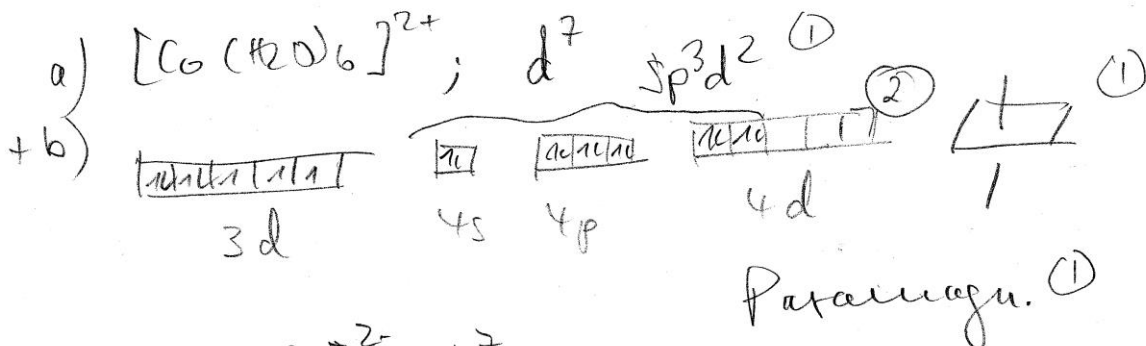 a) [Co(H2O)6]2+ ; d7 sp3d2 ①
+b) ② ①
3d 4s 4p 4d
Paramagn. ①
2- 7